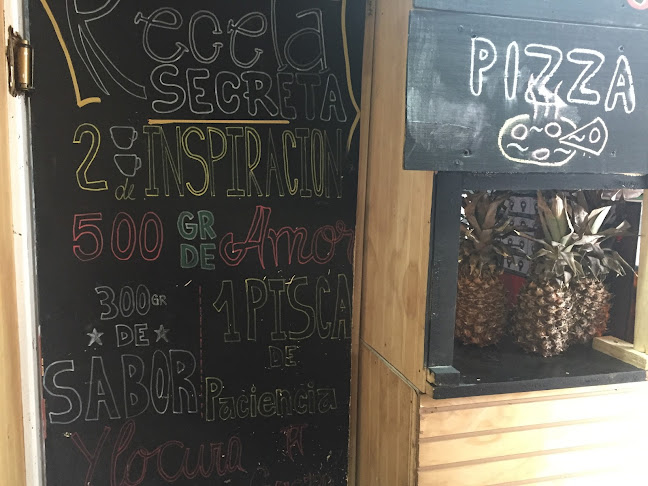 Receta
SECRETA
2 de INSPIRACION
500 GR DE Amor
300 GR
DE
SABOR
1 PISCA
DE
Paciencia
Y locura
PIZZA